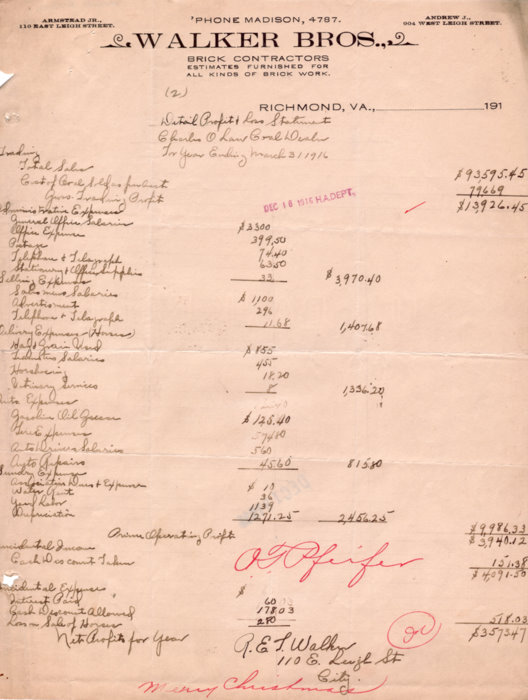 ARMSTEAD JR.,
110 EAST LEIGH STREET.
'PHONE MADISON, 4787.
ANDREW J.,
904 WEST LEIGH STREET.
WALKER BROS.,
BRICK CONTRACTORS
ESTIMATES FURNISHED FOR
ALL KINDS OF BRICK WORK.
(2)
RICHMOND, VA., 191
Detail Profit & Loss Statement
Charles O Law Coal Dealer
For Year Ending March 31 1916
Trading
Total Sales $93595.45
Cost of Coal Sold as per Cost 79669
Gross Trading Profit $13926.45
DEC 18 1916 H.A.DEPT.
Administrative Expenses
General Office Salaries $3300
Office Expense 399.50
Postage 74.40
Telephone & Telegraph 63.50
Stationery & Office Supplies 33 $3,970.40
Selling Expenses
Salesmens Salaries $1,100
Advertisment 296
Telephone & Telegraph 11.68 1,407.68
Delivery Expenses (Horses)
Hay & Grain Used $855
Salaries 455
Horseshoeing 18.20
Vetinary Services 8 1,336.20
Auto Expenses
Gasoline Oil Grease $125.40
Tire Expense 57480
Auto Drivers Salaries 560
Auto Repairs 45.60 815.80
Sundry Expense
Association Dues & Expense $10
Water Rent 36
Yard Labor 1139
Depreciation 1271.25 2,456.25
$9,986.33
Operating Profit $3,940.12
Incidental Income
Cash Discount Taken 151.38
$4,091.50
O T Pfeifer
Incidental Expenses $
Interest Paid 60
Cash Discount Allowed 178.03
Loss on Sale of Horses 280 518.03
Net Profits for Year $3573.47
R. E. L. Walker
110 E. Leigh St
City
Merry Christmas